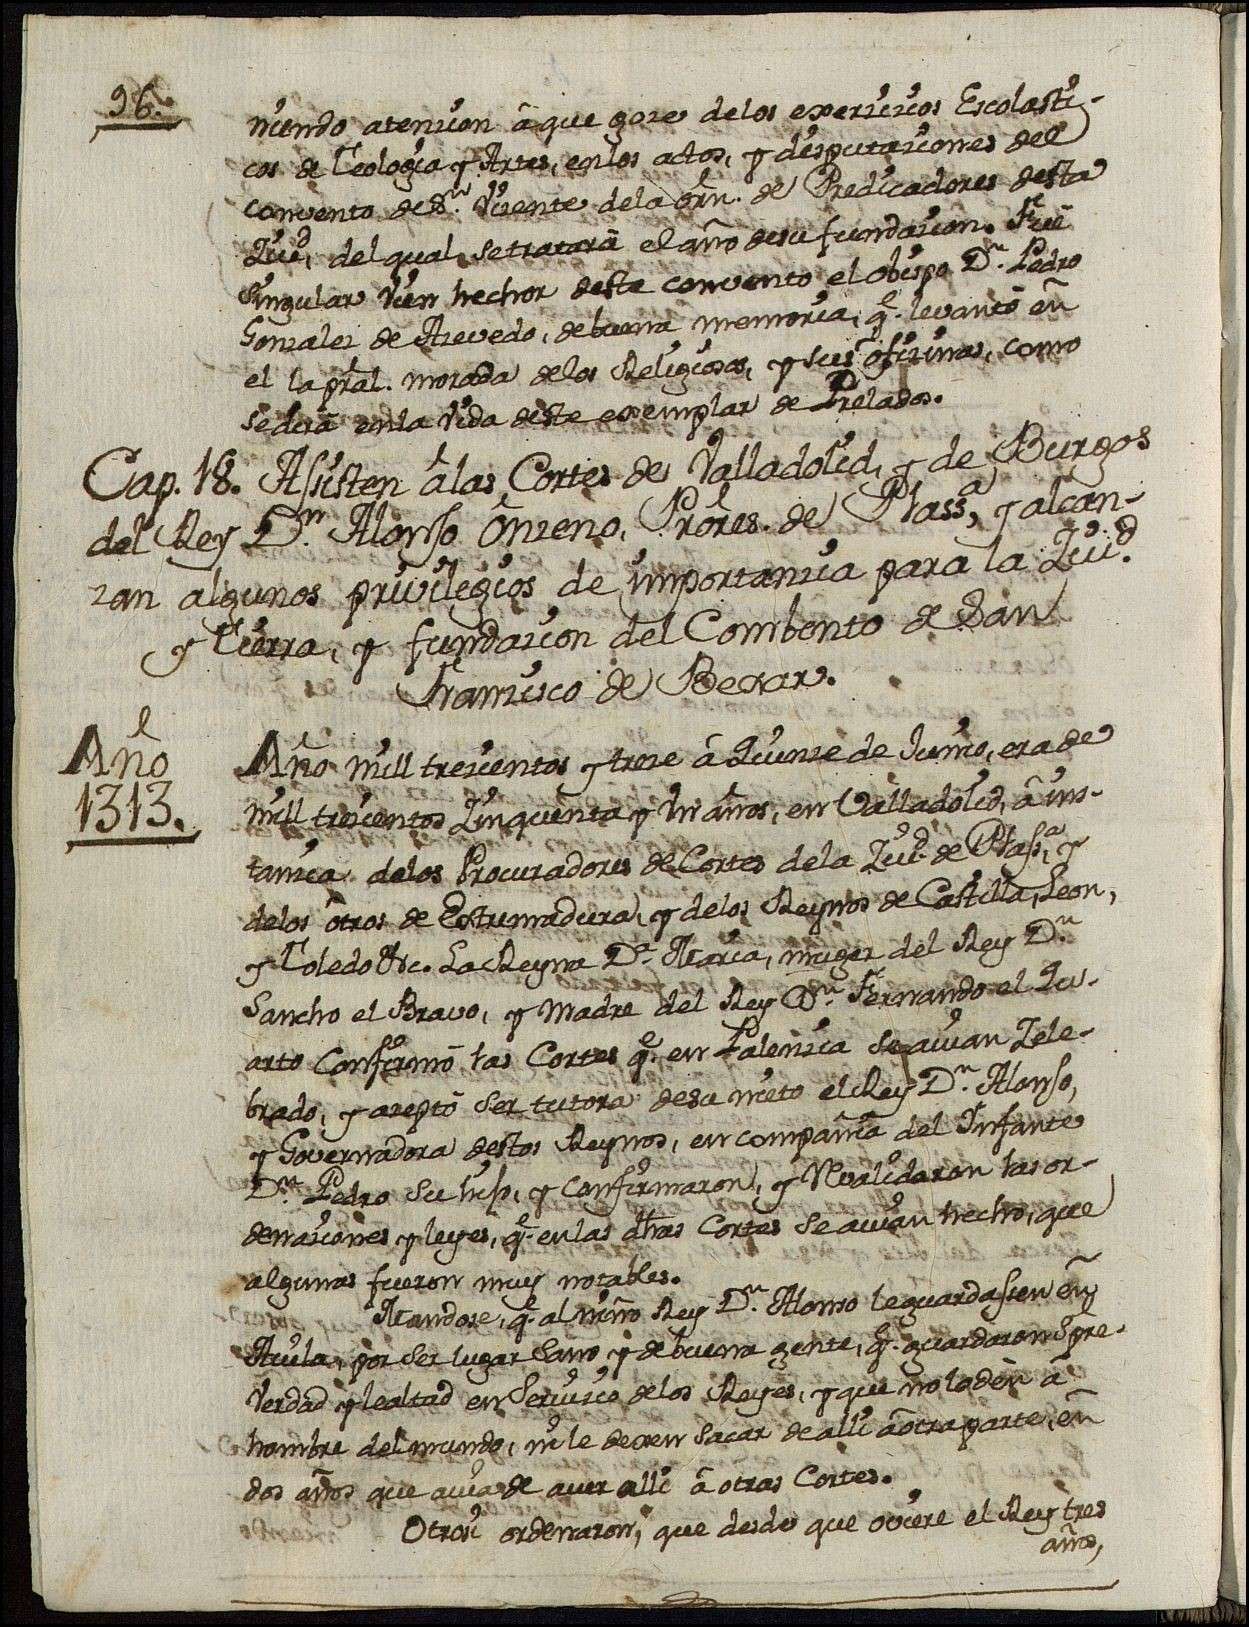 96.
niendo atencion â que goze delos exerzizios Escolasti-
cos de Teologia y Artes, enlos actos, y disputaziones del
convento de Sn. Vizente dela orn. de Predicadores desta
Ziud, del qual se tratarâ el año desu fundazion. Fuê
Singular vien hechor deste convento el obispo Dn. Pedro
Gonzalez de Azevedo, debuena memoria, qe. levantô en
el la pral. morada delos Religiosos, y sus ofizinas, como
se dirâ enla vida deste exemplar de Prelados.
Cap. 18. Assisten âlas Cortes de Valladolid, y de Burgos
del Rey Dn. Alonso Onzeno, Prôres. de Plassa, y alcan-
zan algunos privilegios de importanzia para la Ziud.
y Tierra, y fundazion del Combento de San
Franzisco de Bexar.
Año
1313.
Año mill trezientos y treze â Quinze de Junio, era de
mill trezientos Zinquenta y un años, en Valladolid, â ins-
tanzia delos Procuradores de Cortes dela Ziud. de Plasa, y
delos otros de Extremadura, y delos Reynos de Castilla, Leon,
y Toledo &c. La Reyna Da. Maria, muger del Rey Dn.
Sancho el Bravo, y Madre del Rey Dn. Fernando el Qu-
arto Confirmô las Cortes qe. en Palenzia se avian Zele-
brado, y azeptô ser tutora desu nieto el Rey Dn. Alonso,
y Governadora destos Reynos, en compañia del Infante
Dn. Pedro su hijo, y Confirmaron, y Revalidaron las or-
denaziones y leyes, qe. en las dhas Cortes se avian hecho, que
algunas fueron muy notables.
Mandose, qe. al niño Rey Dn. Alonso le guardassen en
Avila, por ser lugar Sano y debuena gente, qe. guardaron Spre.
verdad y lealtad en Servizio delos Reyes, y que nolodên â
hombre del mundo, ni le dexen sacar de alli âotra parte, en
dos años que avia de aver alli â otras Cortes.
Otrosi ordenaron, que desde que oviere el Rey tres
años,